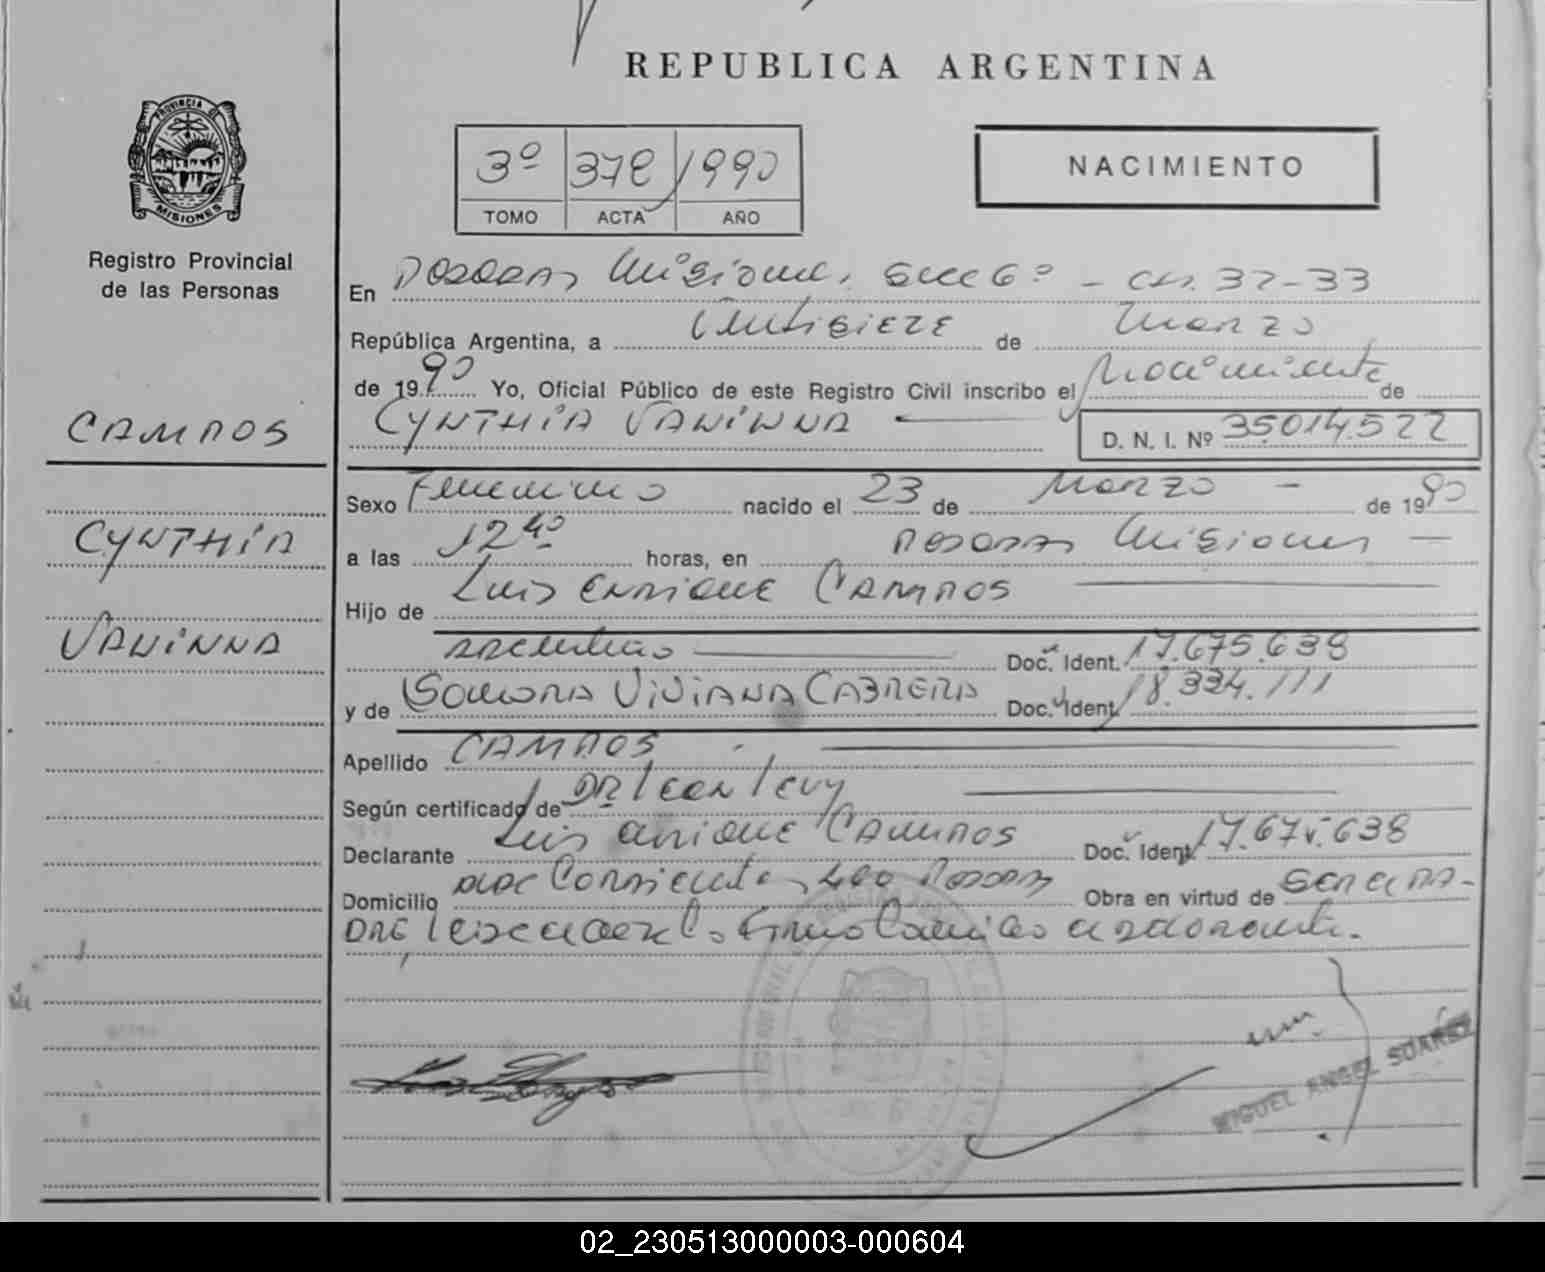 REPUBLICA ARGENTINA
PROVINCIA DE
MISIONES
Registro Provincial
de las Personas
3º 378 1990
TOMO ACTA AÑO
NACIMIENTO
En POSADAS Misiones, Secc 6º - Ch. 32-33
República Argentina, a Veintisiete de Marzo
de 1990 Yo, Oficial Público de este Registro Civil inscribo el Nacimiento de
CYNTHIA VANINNA D. N. I. Nº 35.014.522
CAMPOS
CYNTHIA
VANINNA
Sexo Femenino nacido el 23 de Marzo - de 1990
a las 12 40 horas, en POSADAS Misiones -
Hijo de Luis ENRIQUE CAMPOS
ARGENTINO Doc. Ident. 17.675.638
y de VIVIANA CABRERA Doc. Ident. 18.334.111
Apellido CAMPOS
Según certificado de DR
Declarante Luis ENRIQUE CAMPOS Doc. Ident. 17.675.638
Domicilio Corrientes 400 POSADAS Obra en virtud de SER EL PA-
DRE Firmo
MIGUEL ANGEL SUAREZ
02_230513000003-000604